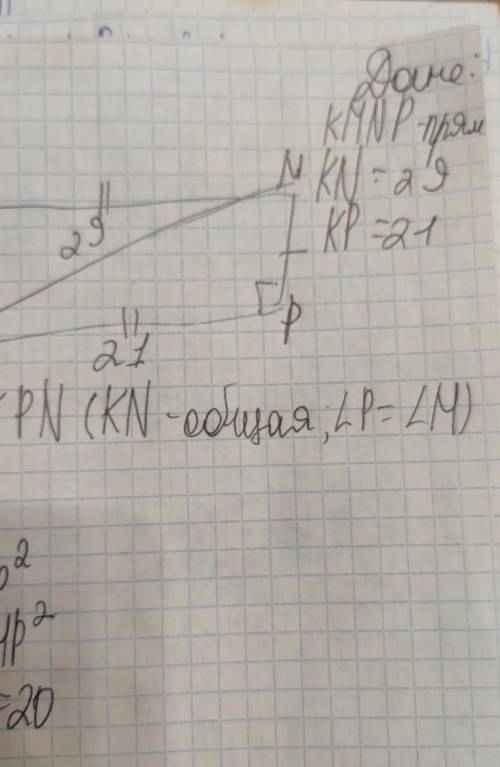 Дано:
KMNP-прям
N KN=29
29 KP=21
P
21
PN (KN-общая; ∠P=∠M)
2
p²
=20